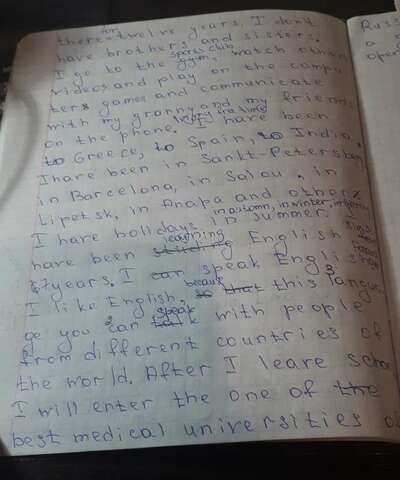 for
there twelve years. I don't
have brothers and sisters.
sports club
I go to the gym, watch other
videos and play on the compu
ters games and communicate
with my granny and my friend
on the phone. I have been
to Greece, to Spain, to India.
I have been in Sankt-Petersburg
in Barcelona, in Salou, in
Lipetsk, in Anapa and other
in autumn, in winter, in spring
I have holidays in summer. I
learning
have been English
years. I can speak English
I like English, because this langua
speak
ge you can with people
from different countries of
the world. After I leave scho
I will enter the one of the
best medical universities of
Russ
a
opera